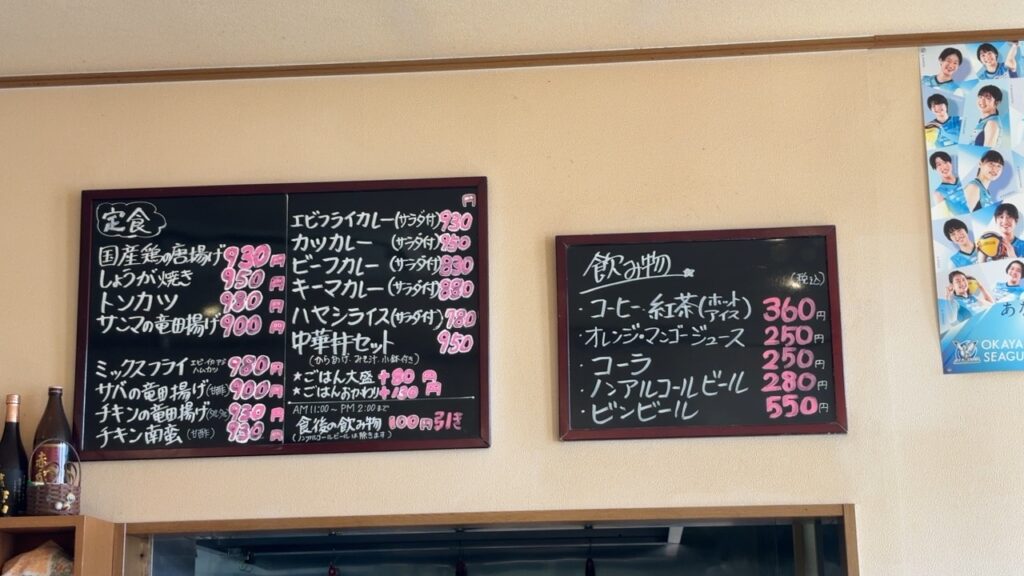 定食
国産鶏の唐揚げ 930円
しょうが焼き 950円
トンカツ 980円
サンマの竜田揚げ 900円
ミックスフライ 980円
サバの竜田揚げ(甘酢) 900円
チキンの竜田揚げ 930円
チキン南蛮(甘酢) 930円
円
エビフライカレー(サラダ付) 930
カツカレー(サラダ付) 950
ビーフカレー(サラダ付) 830
キーマカレー(サラダ付) 880
ハヤシライス(サラダ付) 980
中華丼セット 950
(からあげ・みそ汁・小鉢付き)
★ごはん大盛 +80円
★ごはんおかわり +130円
AM 11:00~PM 2:00まで
食後の飲み物 100円引き
(ノンアルコールビールは除きます)
飲み物
(税込)
・コーヒー・紅茶(ホット アイス) 360円
・オレンジ・マンゴージュース 250円
・コーラ 250円
・ノンアルコールビール 280円
・ビンビール 550円
OKAYA
SEAGU